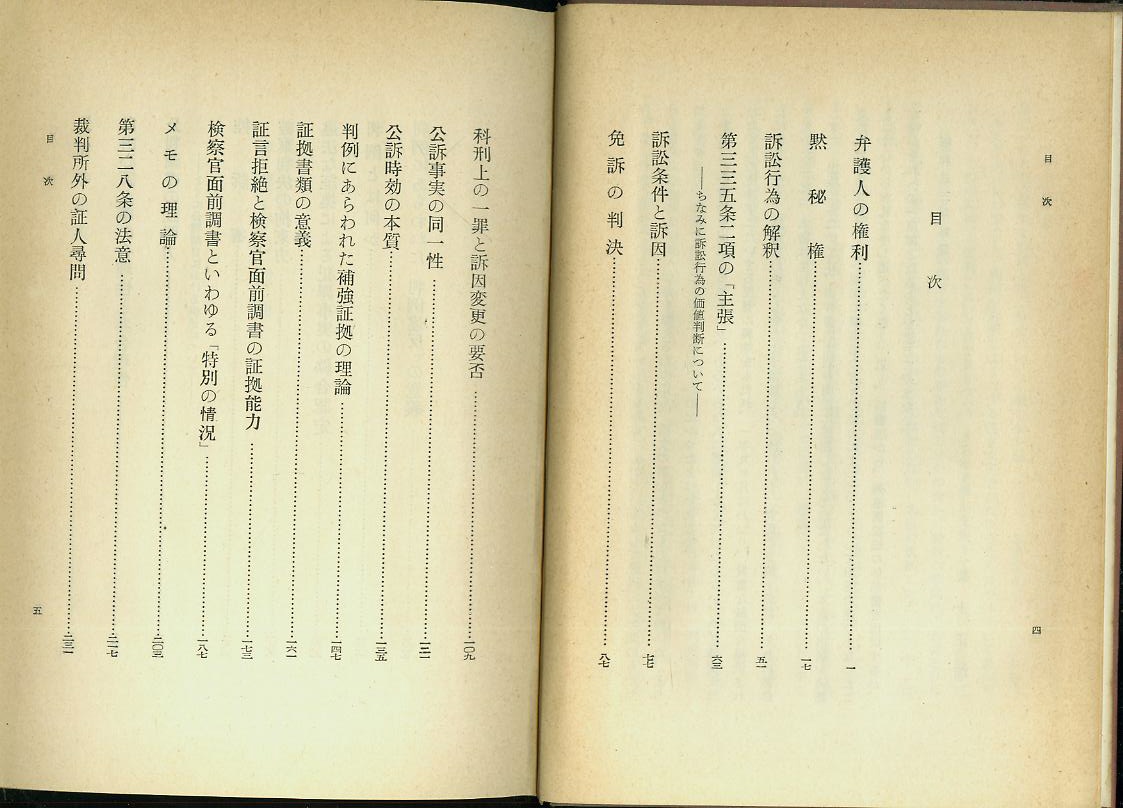 目次
目次
弁護人の権利……一
黙秘権……一七
訴訟行為の解釈……五一
第三三五条二項の「主張」……六三
――ちなみに訴訟行為の価値判断について――
訴訟条件と訴因……七七
免訴の判決……八七
四
科刑上の一罪と訴因変更の要否……一〇九
公訴事実の同一性……一三一
公訴時効の本質……一三五
判例にあらわれた補強証拠の理論……一四七
証拠書類の意義……一六一
証言拒絶と検察官面前調書の証拠能力……一七三
検察官面前調書といわゆる「特別の情況」……一八七
メモの理論……二〇三
第三二八条の法意……二一七
裁判所外の証人尋問……二三一
目次
五